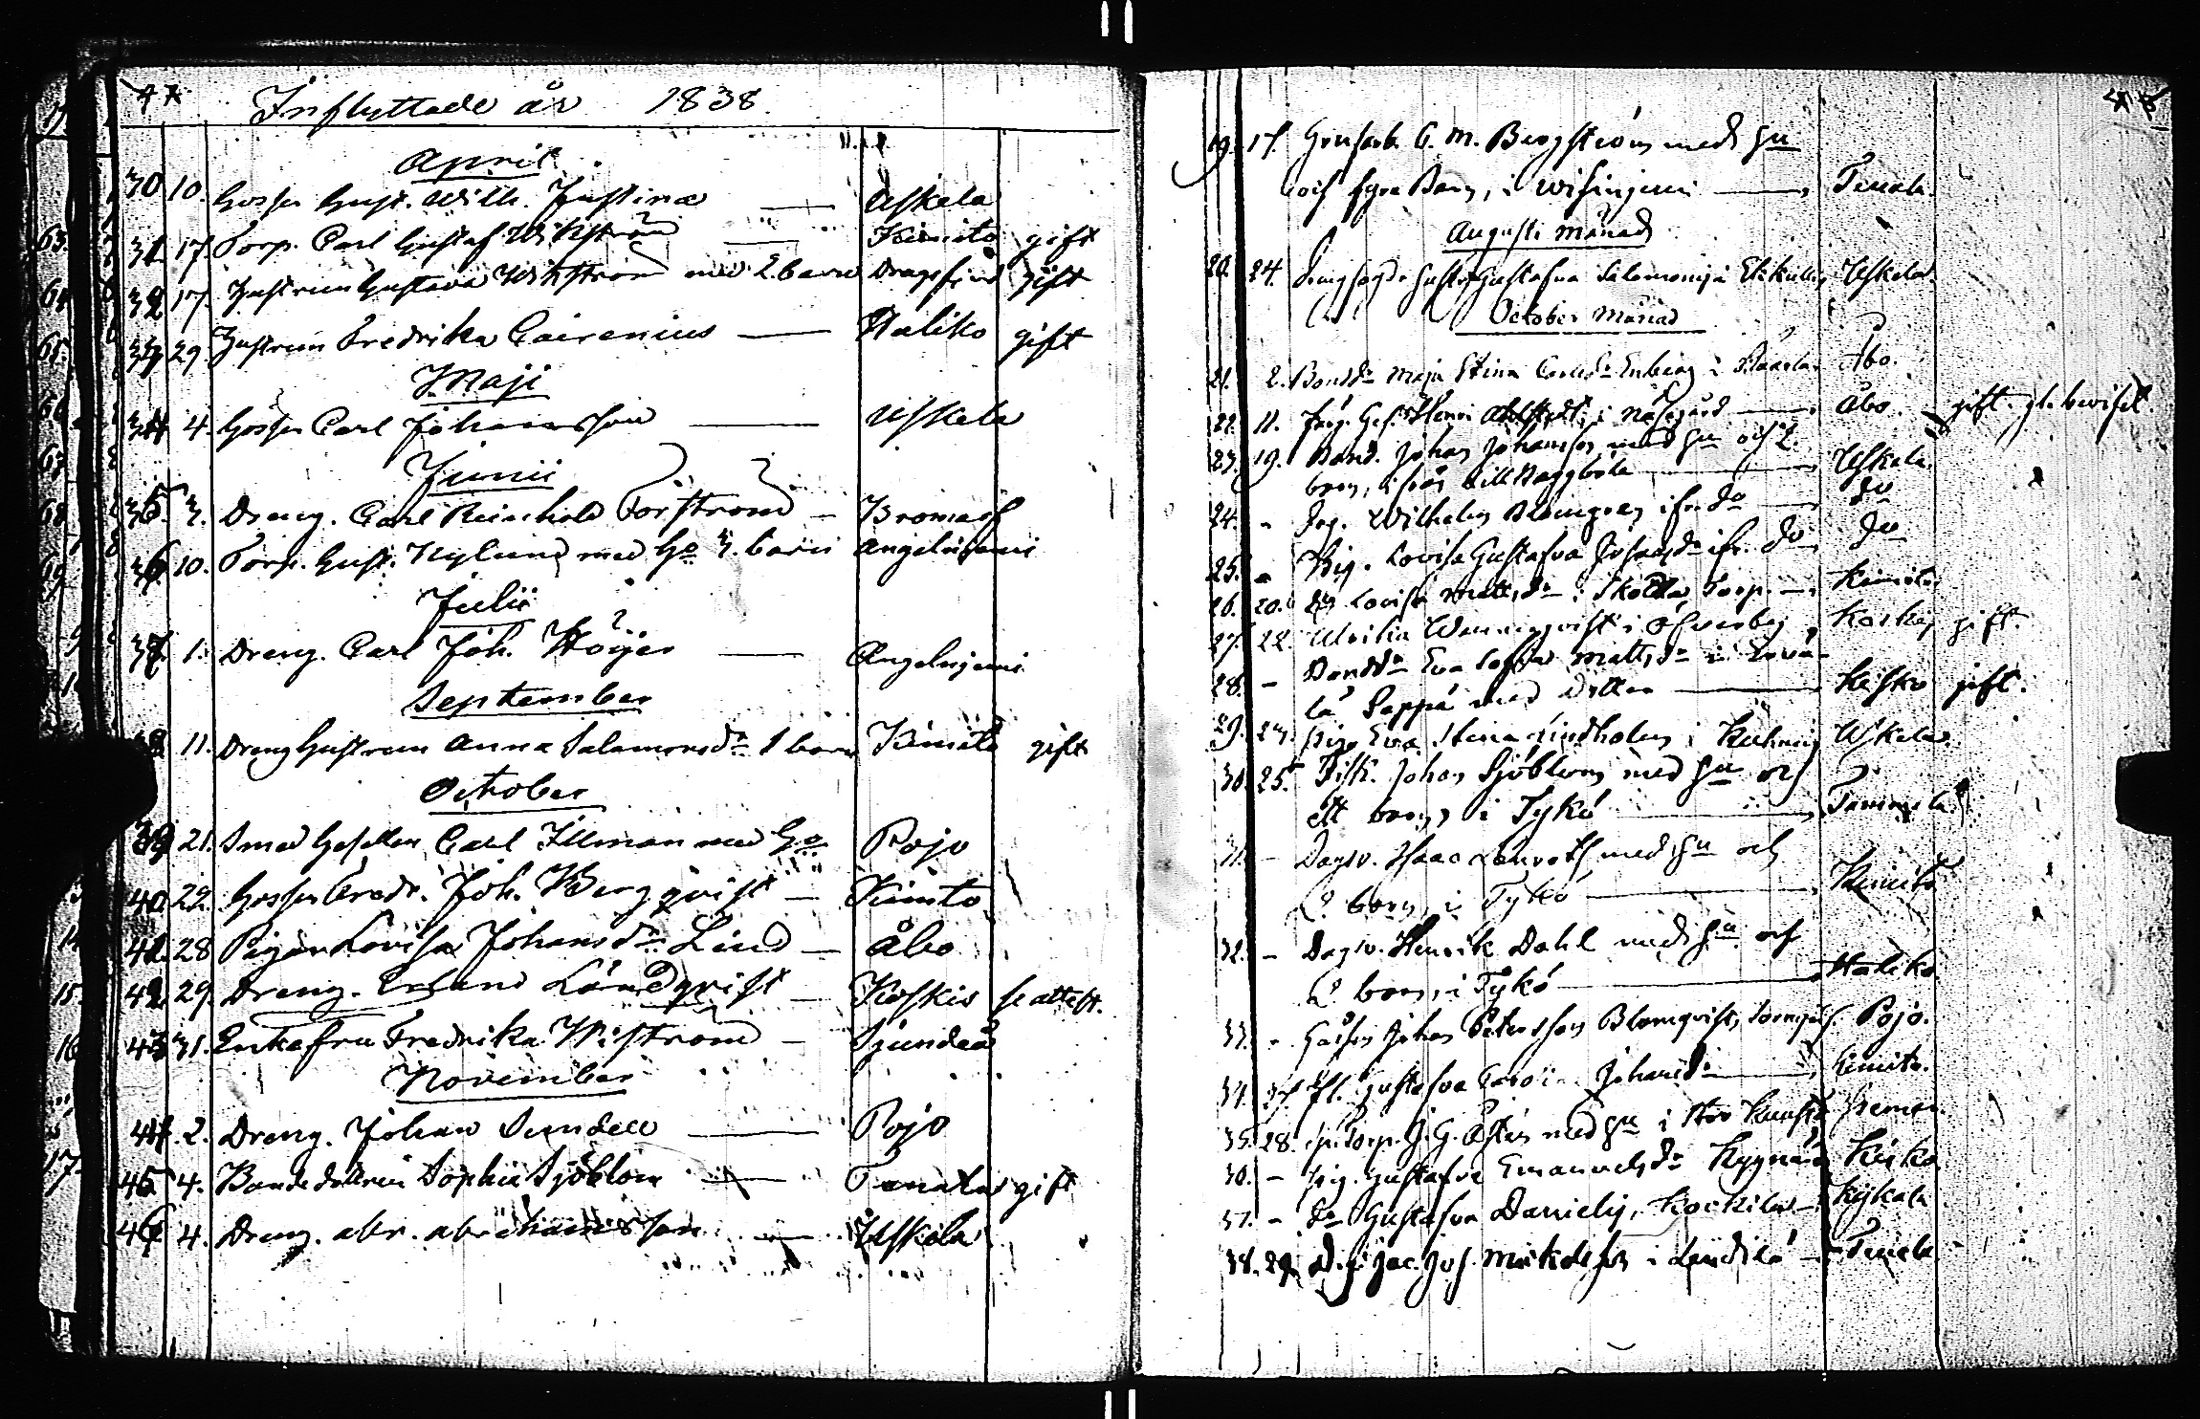 47
Inflyttade år 1838.
April
30 10. Gossen Gust. Wilh. Justinœ — Uskela
31 17. Torp. Carl Gustaf Wikström — Kimito gift
32 17. Hustrun Gustava Wikström med 2 barn Dragsfjärd gift
33 29. Hustrun Fredrika Cairenius — Haliko gift
Maji
34 4. Gossen Carl Johansson — Uskela
Junii
35 3. Dreng. Carl Reinhold Forström — Bromarf
36 10. Torp. Gust. Nylund med Ho 3. barn Angelniemi
Julii
37 1. Dreng. Carl Joh. Höijer — Angelnjemi
September
38 11. Dreng Hustrun Anna Salomonsdr 1 barn Kimito gift
October
39 21. Smed Gesellen Carl Illman med Ho Pojo
40. 22. Gossen Fredr. Joh. Bergqvist — Kimito
41. 28 Pigan Lovisa Johansdr Lind — Åbo
42. 29 Dreng. Erland Löndqvist — Koskis se attest.
43 31. Enkefru Fredrika Wiström — Sjundeå
November
44 2. Dreng. Johan Sundell — Pojo
45 4. Bonde dottren Sophia Sjöblom — Tenala gift
46 4. Dreng. Abr. Abrahamsson — Uskela
48
19. 17. C. M. Bergström med hu
och fyra Barn, i — Tenala
Augusti Månad
20. 24. Gustafva Salomonsd Uskela
October Månad
21. 2. Bondr Maja Stina Carlsdr Enberg i — Åbo.
22. 11. Henr. Ahlstedt i Näsegård — Åbo gift. gl. bevist.
23. 19. Bond. Johan Johansson med hu och 2
barn, ifrån till Naggböle — Uskela
24. - Wilhelm Blomgren ifr. do — do
25. - Pig. Lovisa Gustafva Johansdr ifr. do do
26. 20. Lovisa Mattsdr i Sköldla Torp. — Kimito
27. 22. Ulrika Wenneqvist i Öfverby Koskis gift
28. - Bonddr Eva Sofia Mattsdr i
Seppä med dotter — Kisko gift.
29. 24. Pig. Eva Stina Lindholm i Uskela
30. 25. Johan Sjöblom med hu och
ett barn, i Tykö — Tammela
31. - Dagsv. Isaac Lönroth med hu och
2 barn, i Tykö — Kimito
32. - Dagsv. Henrik Dahl med hu och
2 barn, i Tykö — Haliko
33. - Gossen Johan Petersson Blomqvist, Pojo.
34. 27 Gustafva Johansdr — Kimito.
35. 28. Torp. J. G. med hu i
36. - Pig. Gustafva Emanuelsdr Kisko
37. - do Gustafva Danielsd, — Kijkala
38. 29. Jac. Jos. Mickelsson i — Tenala